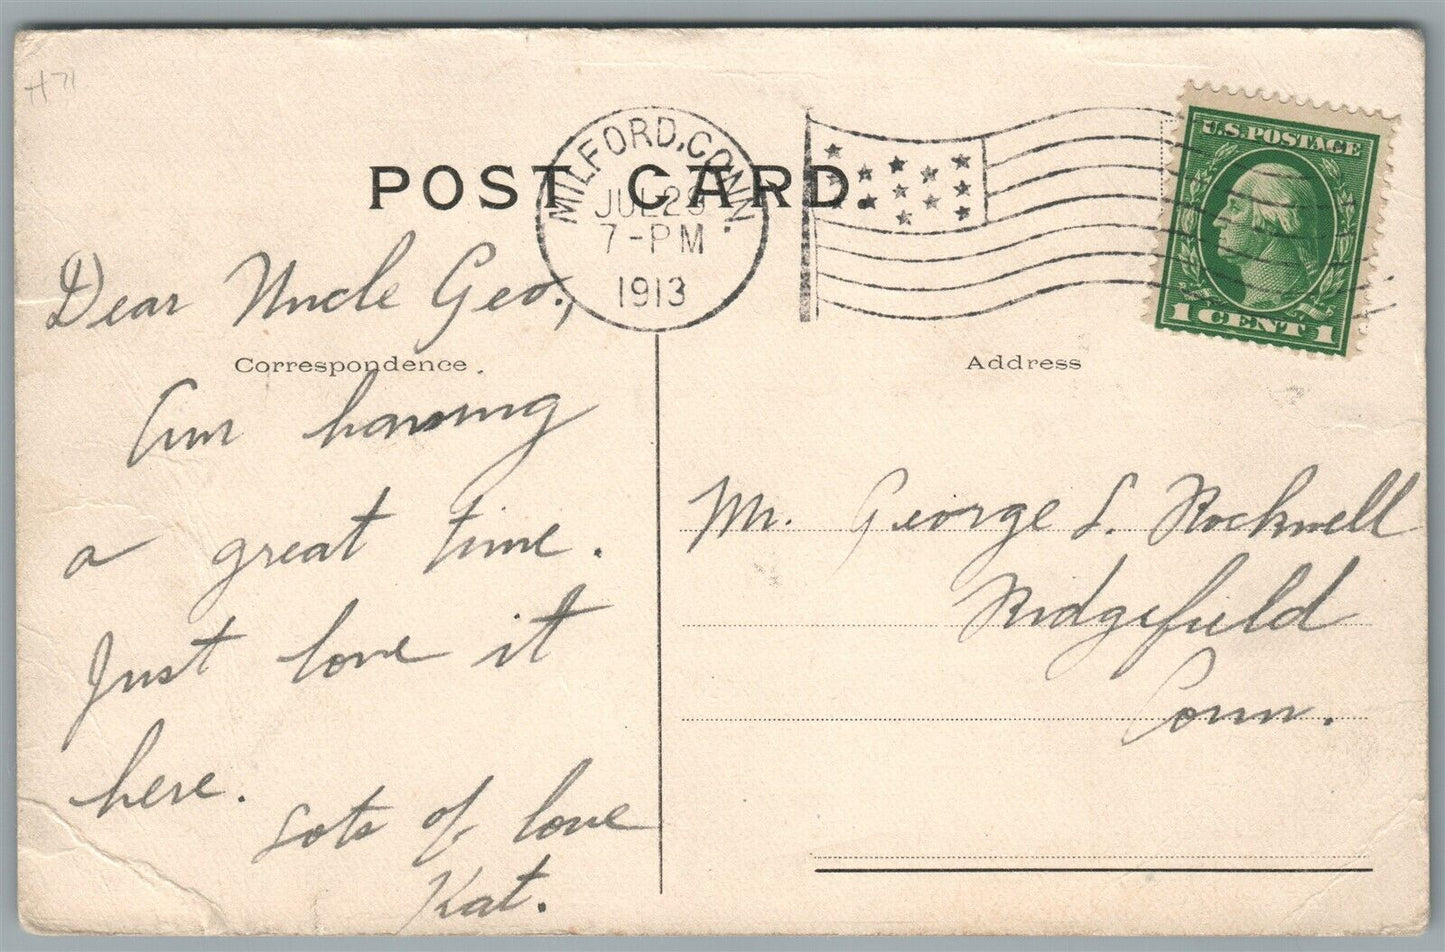 H71
POST CARD.
MILFORD, CONN.
JUL 25
7-PM
1913
U.S. POSTAGE
1 CENT 1
Dear Uncle Geo.,
Correspondence.
Am having
a great time.
Just love it
here.
Lots of love
Kat.
Address
Mr. George L. Rockwell
Ridgefield
Conn.